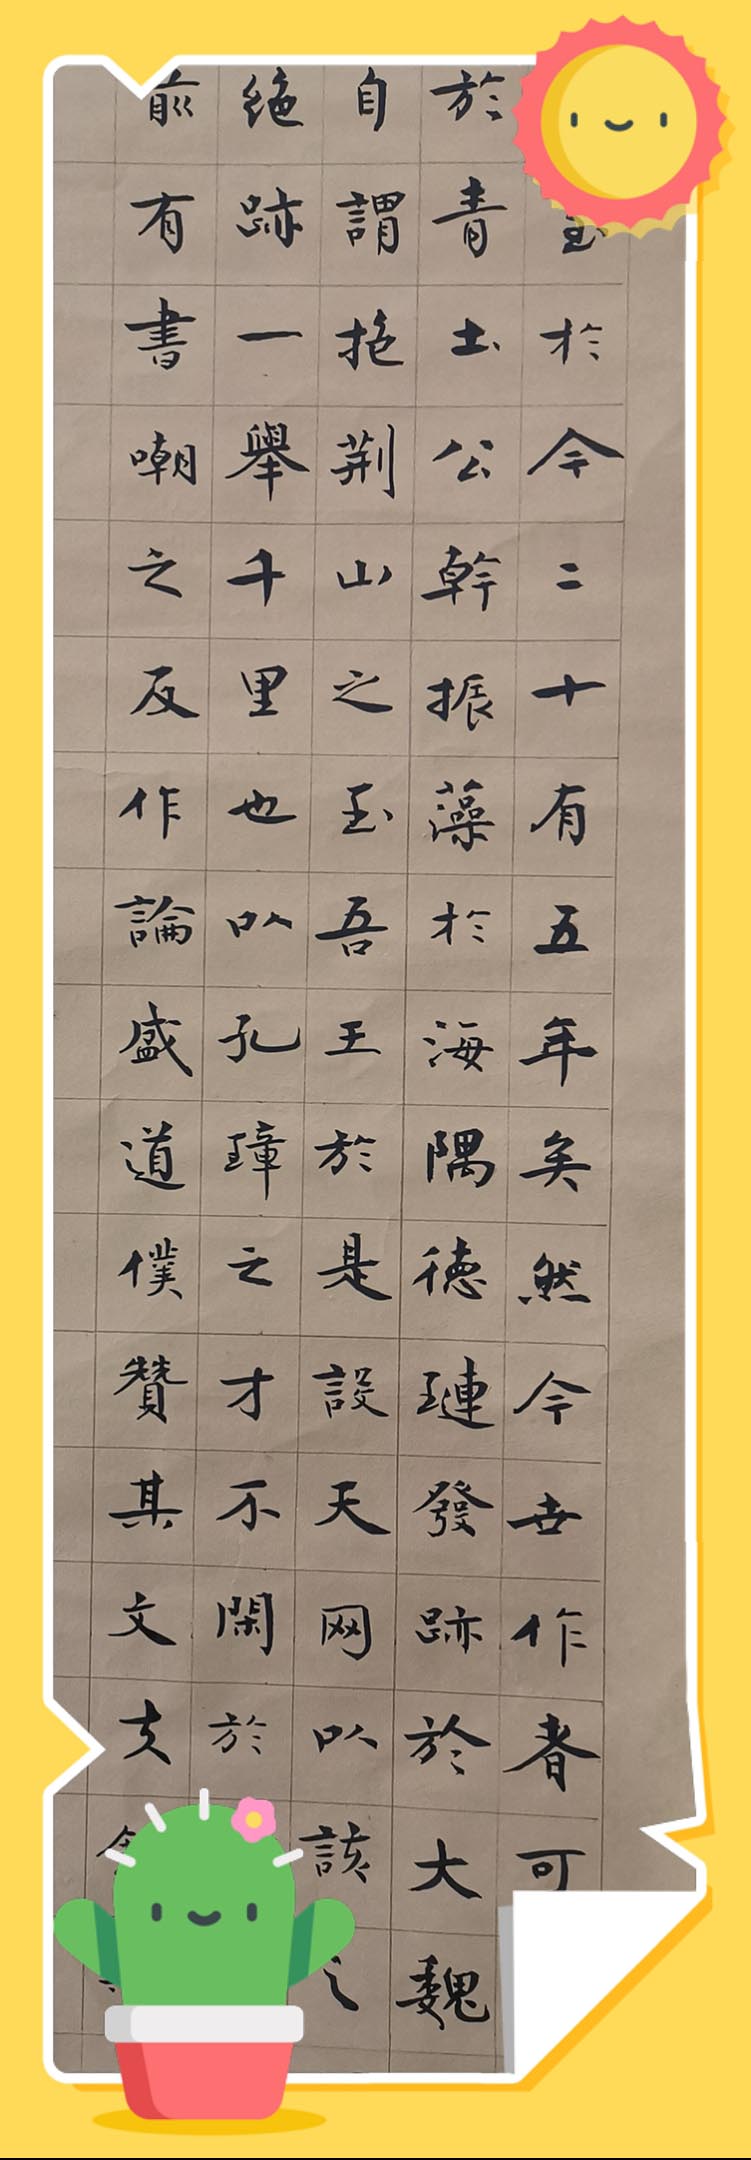 於今二十有五年矣然今世作者可
於青土公幹振藻於海隅德璉發跡於大魏
自謂抱荊山之玉吾王於是設天网以該之
絶跡一舉千里也以孔璋之才不閑於
前有書嘲之反作論盛道僕贊其文夫